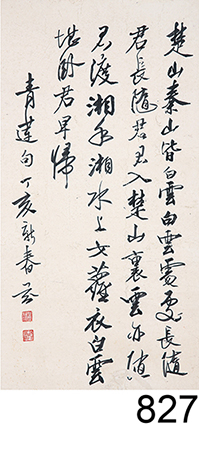 楚山秦山皆白雲白雲處處長隨
君長隨君君入楚山裏雲亦隨
君渡湘水湘水上女蘿衣白雲
堪卧君早歸
青蓮句丁亥新春
827